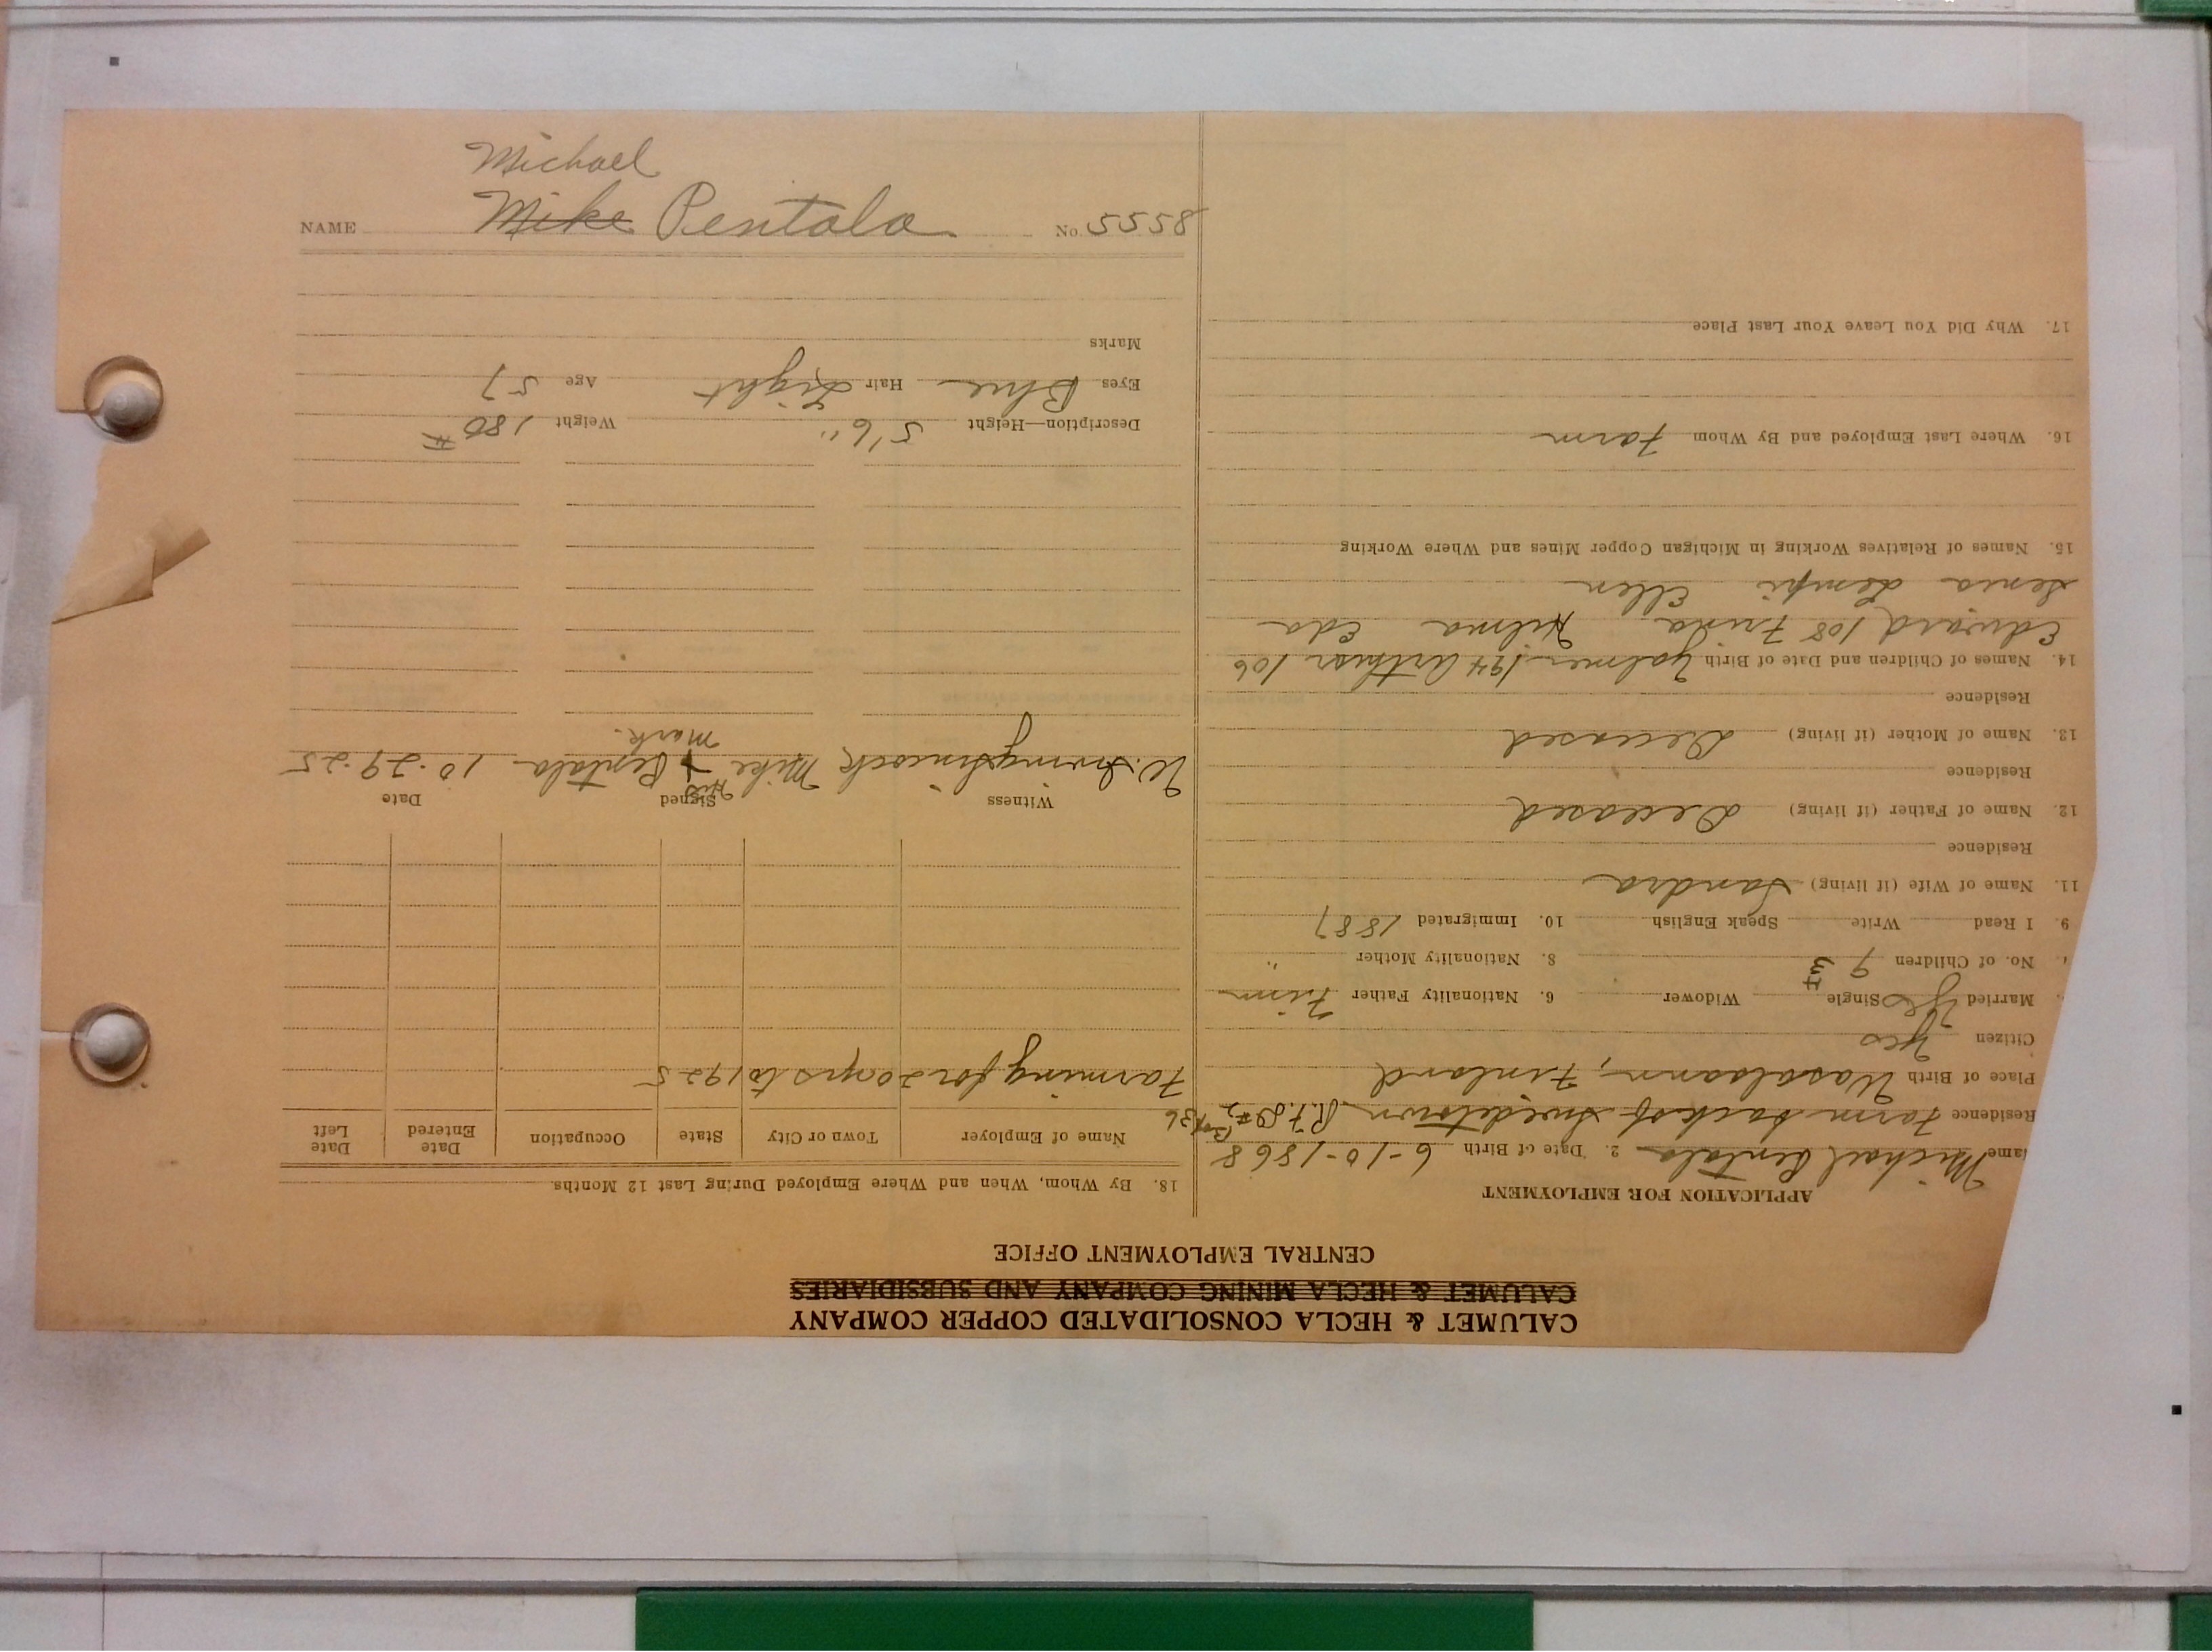 Michael
Mike Pentala
NAME
No. 5558
CALUMET & HECLA CONSOLIDATED COPPER COMPANY
CALUMET & HECLA MINING COMPANY AND SUBSIDIARIES
CENTRAL EMPLOYMENT OFFICE
APPLICATION FOR EMPLOYMENT
Name Michael Pentala 2. Date of Birth 6-10-1868
Residence Farm back of Swedetown R.F.D #2 Box 36
Place of Birth Wasalaann, Finland
Citizen yes
Married yes Single Widower 6. Nationality Father Finn
No. of Children 9 8. Nationality Mother "
9. I Read Write Speak English 10. Immigrated 1887
11. Name of Wife (if living) Sandra
Residence
12. Name of Father (if living) Deceased
Residence
13. Name of Mother (if living) Deceased
Residence
14. Names of Children and Date of Birth Yalmer 194 Arthur 106
Edward 108 Frida Hilma Eda
Senia Lempi Ellen
15. Names of Relatives Working in Michigan Copper Mines and Where Working
16. Where Last Employed and By Whom Farm
17. Why Did You Leave Your Last Place
18. By Whom, When and Where Employed During Last 12 Months
Name of Employer Town or City State Occupation Date Entered Date Left
Farming for 20 yrs to 1925
Witness Signed Date
His
W. Mike + Pentala 10-29-25
mark.
Description—Height 5'6" Weight 180 #
Eyes Blue Hair Light Age 57
Marks